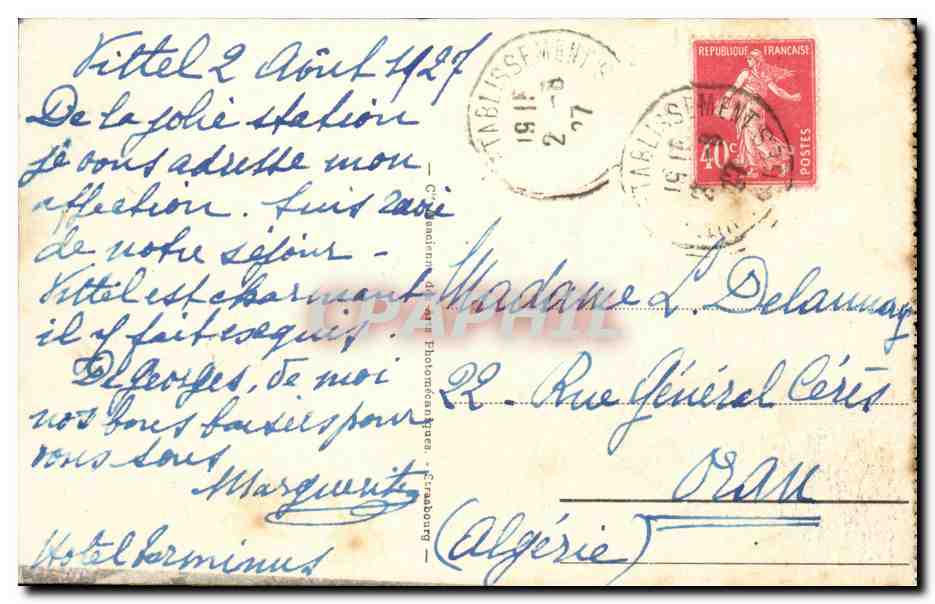 Vittel 2 Août 1927
De la jolie station
je vous adresse mon
affection. Suis ravie
de notre séjour -
Vittel est charmant
il y fait exquis.
De Georges, de moi
nos bons baisers pour
vous tous
Marguerite
Hotel Terminus
Cie Alsacienne des Arts Photomécaniques. - Strasbourg -
ETABLISSEMENTS
19 15
2 - 8
27
REPUBLIQUE FRANÇAISE
40c
POSTES
ETABLISSEMENTS
Madame L. Delaunay
22 - Rue Général Cérès
Oran
(Algérie)
CPAPHIL